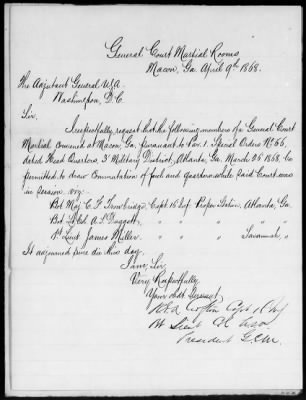 General Court Martial Rooms
Macon, Ga April 9th 1868.
The Adjutant General U.S.A.
Washington, D.C.
Sir.
I respectfully request that the following members of a General Court
Martial convened at Macon, Ga, pursuant to Par. 1. Special Orders No 66,
dated Head Quarters, 3d Military District, Atlanta, Ga. March 25 1868, be
permitted to draw Commutation of fuel and quarters while said Court was
in Session viz:-
Bvt Maj. C. F. Trowbridge, Capt 16 Inf. Proper Station, Atlanta, Ga.
Bvt Lt Col A. S. Daggett, " " " " " "
1st Lieut James Miller. " " " " Savannah, "
It adjourned sine die this day.
I am, Sir,
Very Respectfully
Your obdt Servant,
R. E. A. Crofton Capt 16 Inf
Bt Lieut Col USA
President G.C.M.